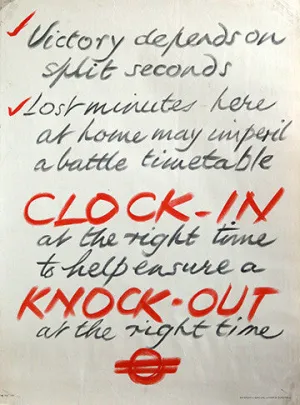 Victory depends on
split seconds
Lost minutes here
at home may imperil
a battle timetable
CLOCK-IN
at the right time
to help ensure a
KNOCK-OUT
at the right time